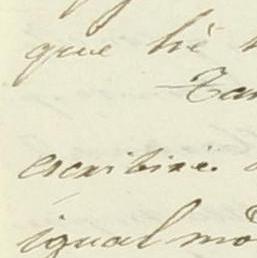 que hè
Tan
escribiré.
igual mo